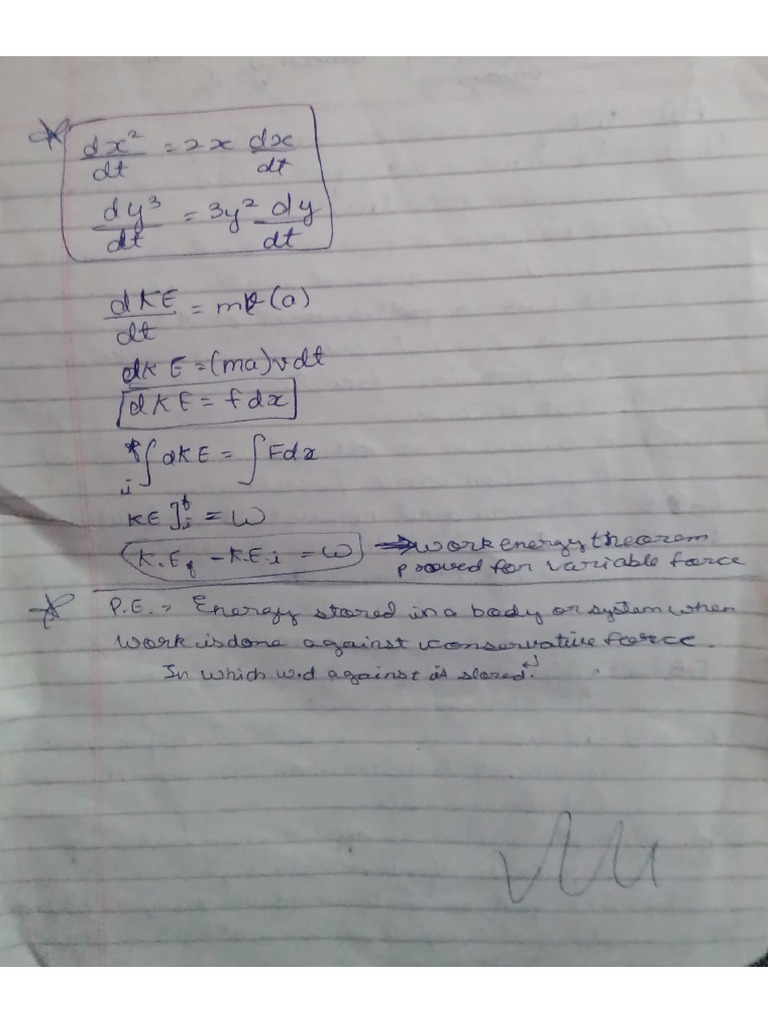 dx² / dt = 2x dx / dt
dy³ / dt = 3y² dy / dt
dKE / dt = mv(a)
dKE = (ma)vdt
dKE = fdx
f∫i dKE = ∫Fdx
KE]fi = W
K.Ef - K.Ei = W → work energy theorem
proved for variable force
P.E. = Energy stored in a body or system when
work is done against conservative force.
In which w.d against is stored.